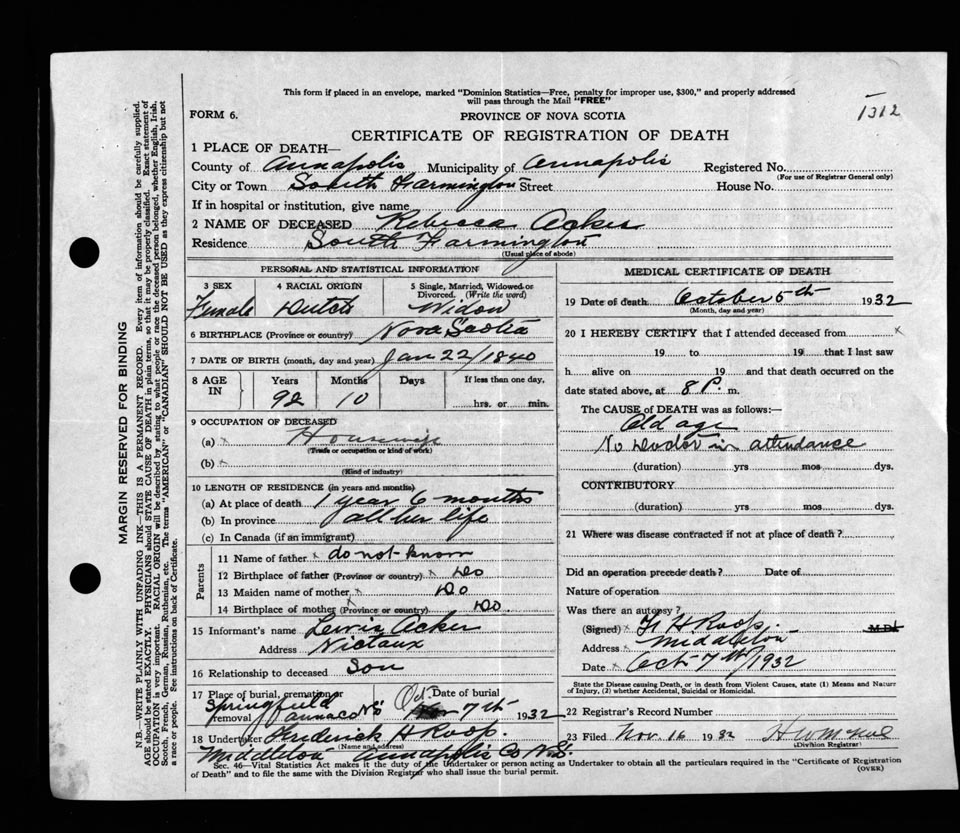 This form if placed in an envelope, marked "Dominion Statistics—Free, penalty for improper use, $300," and properly addressed
will pass through the Mail "FREE"
1312
FORM 6.
PROVINCE OF NOVA SCOTIA
CERTIFICATE OF REGISTRATION OF DEATH
1 PLACE OF DEATH—
County of Annapolis Municipality of Annapolis Registered No.
(For use of Registrar General only)
City or Town South Farmington Street House No.
If in hospital or institution, give name
2 NAME OF DECEASED Rebecca Acker
Residence South Farmington
(Usual place of abode)
PERSONAL AND STATISTICAL INFORMATION
3 SEX 4 RACIAL ORIGIN 5 Single, Married, Widowed or Divorced. (Write the word)
Female Dutch Widow
6 BIRTHPLACE (Province or country) Nova Scotia
7 DATE OF BIRTH (month, day and year) Jan 22/1840
8 AGE IN Years Months Days If less than one day,
92 10 hrs. or min.
9 OCCUPATION OF DECEASED
(a) x Housewife
(Trade or occupation or kind of work)
(b) x
(Kind of industry)
10 LENGTH OF RESIDENCE (in years and months)
(a) At place of death 1 year 6 months
(b) In province all her life
(c) In Canada (if an immigrant)
Parents
11 Name of father x do not know
12 Birthplace of father (Province or country) x Do
13 Maiden name of mother x Do
14 Birthplace of mother (Province or country) x Do.
15 Informant's name Lewis Acker
Address Nictaux
16 Relationship to deceased Son
17 Place of burial, cremation or removal Springfield Anna Co NS
Date of burial Oct. 7th 1932
18 Undertaker Frederick H Roop.
(Name and address)
Middleton Annapolis Co N.S.
MEDICAL CERTIFICATE OF DEATH
19 Date of death October 5th 1932
(Month, day and year)
20 I HEREBY CERTIFY that I attended deceased from x
19 to 19 that I last saw
h alive on 19 and that death occurred on the
date stated above, at 8 P. m.
The CAUSE OF DEATH was as follows:—
Old age
No Doctor in attendance
(duration) yrs mos dys.
CONTRIBUTORY
(duration) yrs. mos. dys.
21 Where was disease contracted if not at place of death?
Did an operation precede death? Date of
Nature of operation
Was there an autopsy?
(Signed) x F H Roop. M.D.
Address x Middleton
Date x Oct 7th/1932
State the Disease causing Death, or in death from Violent Causes, state (1) Means and Nature
of Injury, (2) whether Accidental, Suicidal or Homicidal.
22 Registrar's Record Number
23 Filed Nov. 16 1932
(Division Registrar)
Sec. 46—Vital Statistics Act makes it the duty of the Undertaker or person acting as Undertaker to obtain all the particulars required in the "Certificate of Registration
of Death" and to file the same with the Division Registrar who shall issue the burial permit.
(OVER)
MARGIN RESERVED FOR BINDING
N.B.—WRITE PLAINLY WITH UNFADING INK—THIS IS A PERMANENT RECORD. Every item of information should be carefully supplied.
AGE should be stated EXACTLY. PHYSICIANS should STATE CAUSE OF DEATH in plain terms, so that it may be properly classified. Exact statement of
OCCUPATION is very important. RACIAL ORIGIN will be described by stating to what people or race the deceased person belonged, whether English, Irish,
Scotch, French, German, Russian, Ruthenian, etc. The terms "AMERICAN" or "CANADIAN" SHOULD NOT BE USED as they express citizenship but not
a race or people. See instructions on back of Certificate.